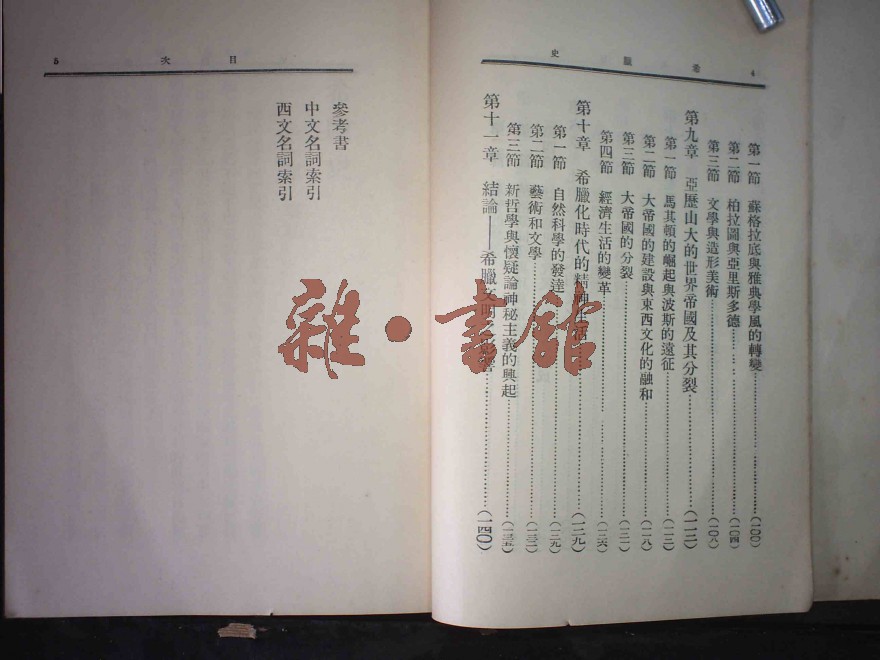 4 希臘史
第一節 蘇格拉底與雅典學風的轉變……(一〇〇)
第二節 柏拉圖與亞里斯多德……(一〇四)
第三節 文學與造形美術……(一〇八)
第九章 亞歷山大的世界帝國及其分裂……(一一三)
第一節 馬其頓的崛起與波斯的遠征……(一一三)
第二節 大帝國的建設與東西文化的融和……(一一八)
第三節 大帝國的分裂……(一二一)
第四節 經濟生活的變革……(一二六)
第十章 希臘化時代的精神生活……(一二九)
第一節 自然科學的發達……(一二九)
第二節 藝術和文學……(一三二)
第三節 新哲學與懷疑論神秘主義的興起……(一三五)
第十一章 結論——希臘文明之影響……(一四〇)
目次 5
參考書
中文名詞索引
西文名詞索引
雜·書館